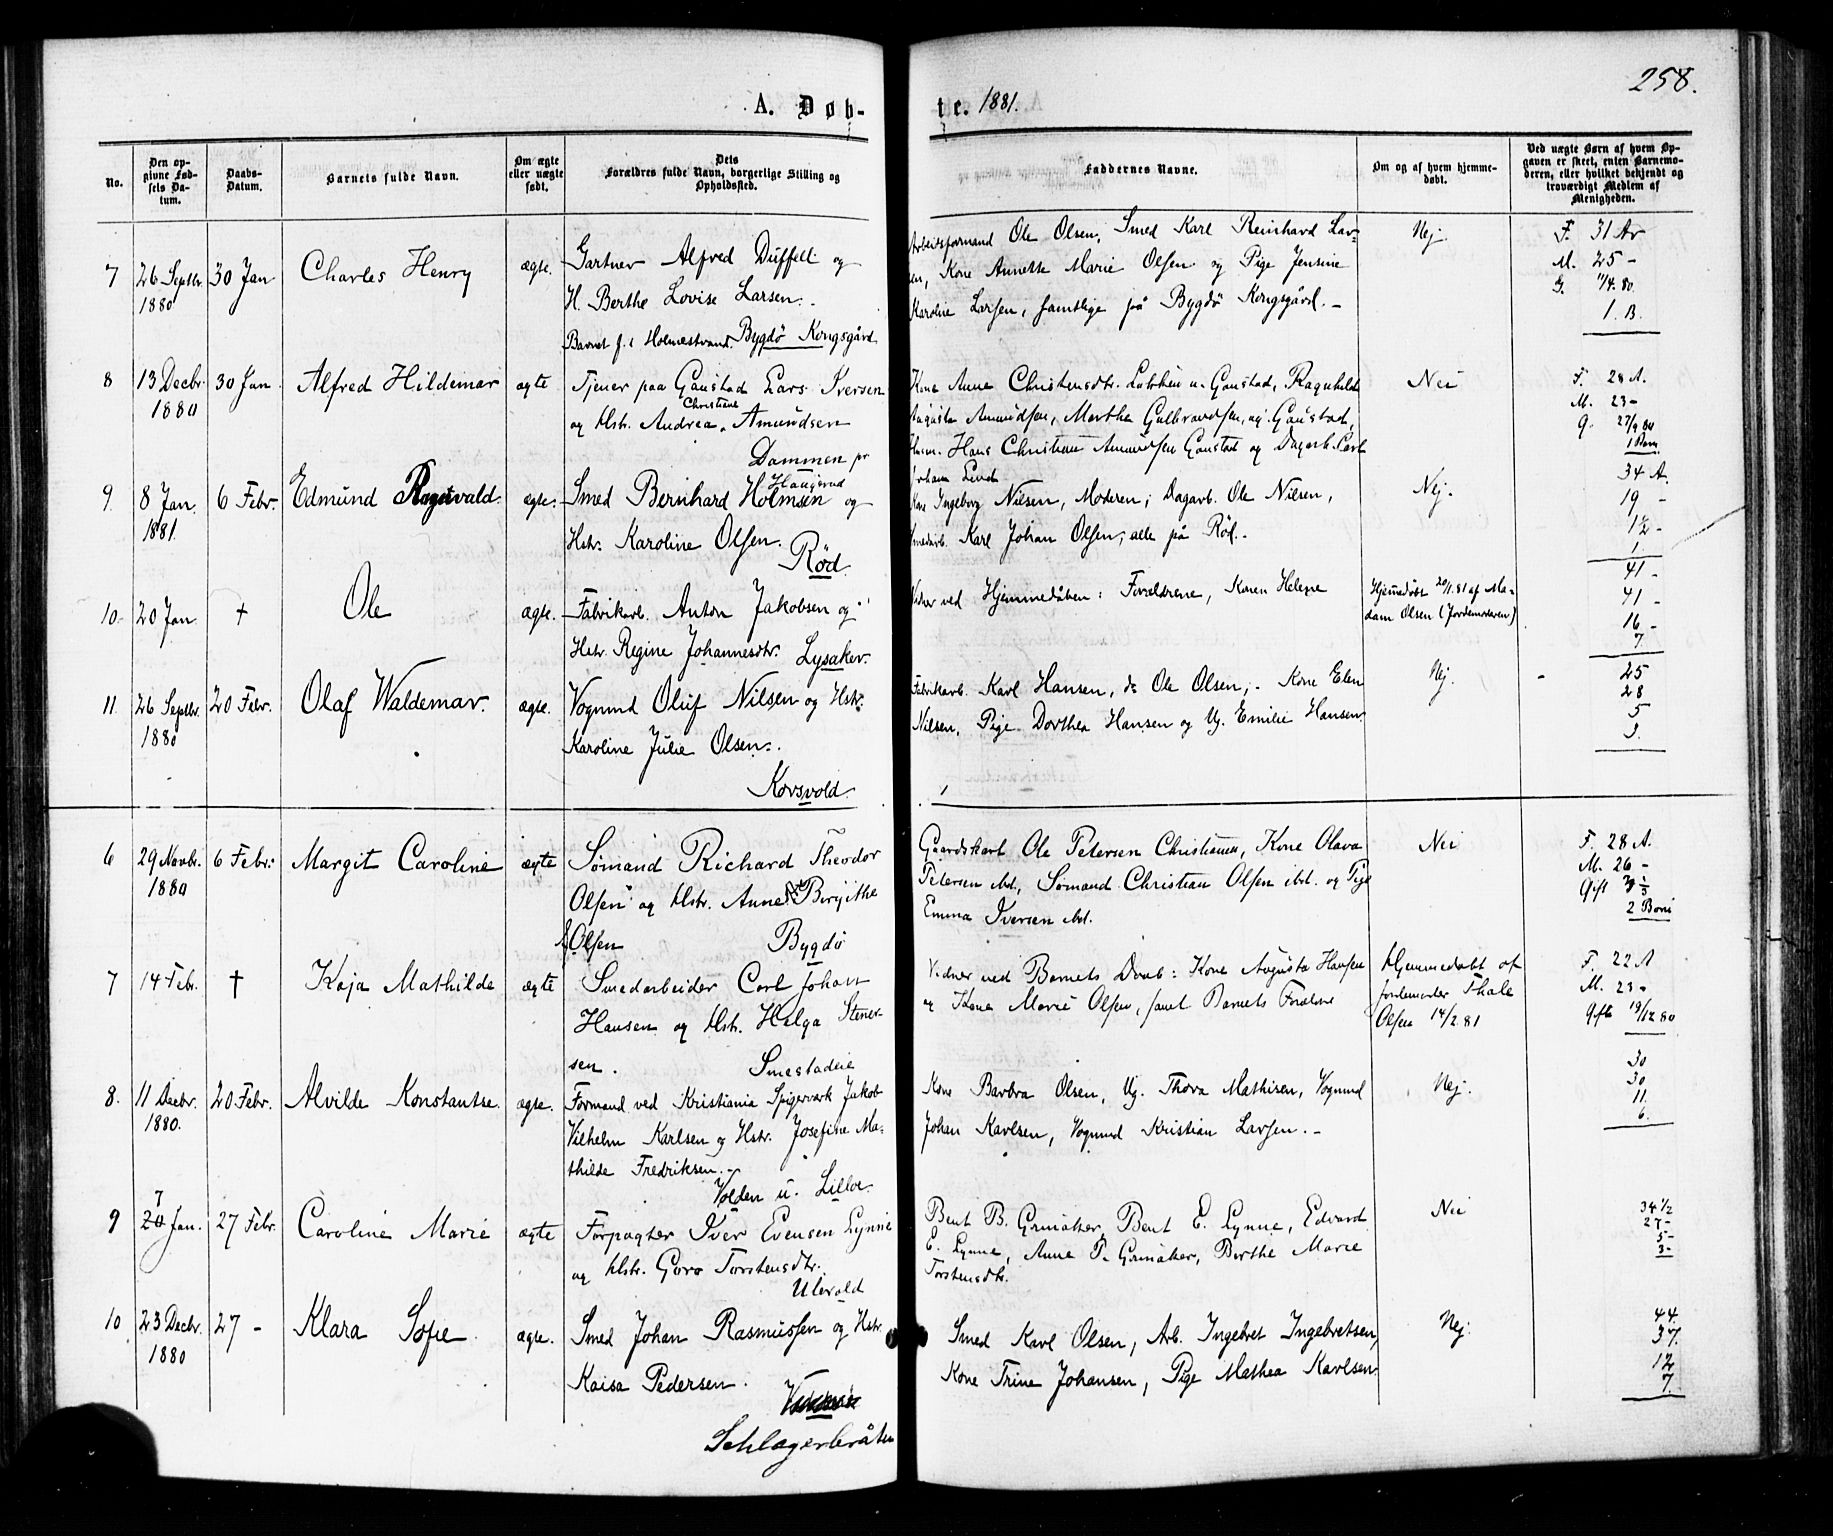 258.
A. Døb-
te. 1881.
No.
Den opgivne Fødsels Datum.
Daabs-Datum.
Barnets fulde Navn.
Om ægte eller uægte født.
Dets Forældres fulde Navn, borgerlige Stilling og Opholdssted.
Faddernes Navne.
Om og af hvem hjemmedøbt.
Ved uægte Børn af hvem Opgaven er skeet, enten Barnemoderen, eller hvilket bekjendt og troværdigt Medlem af Menigheden.
7 26 Septbr. 1880 30 Jan Charles Henry ægte.
Gartner Alfred Duffell og
H. Berthe Lovise Larsen.
Barnet f. i Holmestrand. Bygdö Kongsgård.
Arbeidsformand Ole Olsen, Smed Karl Reinhard Lar-
sen, Kone Annette Marie Olsen og Pige Jensine
Karoline Larsen, samtlige på Bygdö Kongsgård. -
Nej.
F. 31 Ar
M. 25 -
G. 11/4. 80.
1. B.
8 13 Decbr. 1880 30 Jan. Alfred Hildemar ægte
Tjener paa Gaustad Lars Iversen
og Hstr. Andrea Christiane Amundsen
Dammen pr
Haugerud
Kone Anne Christensdtr. Løkken u. Gaustad, Ragnhild
Augusta Amundsen, Marthe Gulbrandsen, ug. Gaustad,
Husm. Hans Christian Amundsen Gaustad og Dagarb. Carl
Johan Lind
Nei
F. 28 A.
M. 23 -
G. 27/9 80
1 Barn
9. 8 Jan. 1881. 6 Febr. Edmund Ragnvald. ægte.
Smed Bernhard Holmsen og
Hstr. Karoline Olsen.
Röd.
Kone Ingeborg Nilsen, Moderen; Dagarb. Ole Nilsen,
Smedarb. Karl Johan Olsen, alle på Röd.
Nej.
34 A.
19 -
1½ -
1.
10. 20 Jan. † Ole ægte.
Fabrikarb. Anton Jakobsen og
Hstr. Regine Johannesdtr. Lysaker.
Vidner ved Hjemmedåben: Forældrene, Karen Helene
Hjemmedöbt 20/1.81 af Ma-
dam Olsen (Jordemoderen)
41 -
41 -
16 -
7.
11. 26 Septbr. 1880 20 Febr. Olaf Waldemar. ægte.
Vognmd Oluf Nilsen og Hstr.
Karoline Julie Olsen.
Korsvold.
Fabrikarb. Karl Hansen, do Ole Olsen, - Kone Elen
Nilsen, Pige Dorthea Hansen og Ug. Emilie Hansen
Nej.
25
28
5
3.
6 29 Novbr. 1880 6 Febr. Margit Caroline ægte
Sömand Richard Theodor
Olsen og Hstr. Anne Birgithe
Olsen Bygdö
Gaardskarl Ole Petersen Christiania, Kone Olava
Petersen ibd., Sömand Christian Olsen ibd. og Pige
Emma Iversen ibd.
Nei
F. 28 A.
M. 26 -
Gift
2 Börn
7 14 Febr. † Kaja Mathilde ægte
Smedarbeider Carl Johan
Hansen og Hstr. Helga Stener-
sen. Smestadeie
Vidner ved Barnets Daab: Kone Augusta Hansen
og Kone Marie Olsen, samt Barnets Forældre
Hjemmedöbt af
Jordemoder Thale
Olsen 14/2 81
F. 22 A
M. 23 -
Gift 19/12 80
8. 11 Decbr. 1880. 20 Febr. Alvilde Konstantse. ægte.
Formand ved Kristiania Spigerværk Jakob
Vilhelm Karlsen og Hstr. Josefine Ma-
thilde Fredriksen.
Volden u. Lilloe.
Kone Barbra Olsen, Ug. Thora Mathisen, Vognmd
Johan Karlsen, Vognmd Kristian Larsen. -
Nej.
30
30.
11.
6.
9 7 20 Jan. 27 Febr. Caroline Marie ægte
Forpagter Iver Evensen Lynne
og Hstr. Goro Torstensdtr.
Ulevold
Bent B. Grinaker, Bent E. Lynne, Edvard
E. Lynne, Anne P. Grinaker, Berthe Marie
Torstensdtr.
Nei
34 1/2
27 -
5 -
3 -
10 23 Decbr. 1880 27 - Klara Sofie. ægte.
Smed Johan Rasmussen og Hstr.
Kaisa Pedersen.
Schlagerbråten
Smed Karl Olsen, Arb. Ingebret Ingebretsen,
Kone Trine Johansen, Pige Mathea Karlsen.
Nej.
44.
37.
12
7.